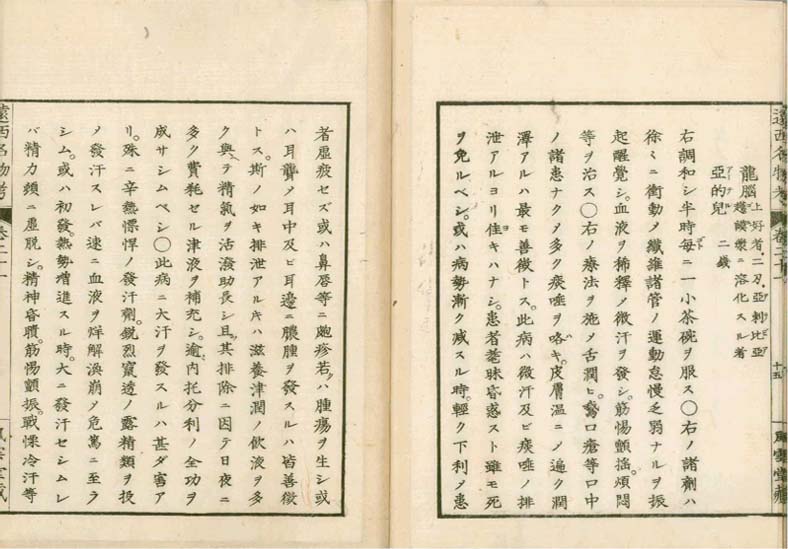 遠西名物考 卷二十一 十五 風雲堂藏
龍腦 上好者二刃、亞剌比亞
護謨漿ニ溶化スル者
亞的兒
右調和シ半時每ニ一小茶碗ヲ服ス〇右ノ諸劑ハ
徐々ニ衝動メ纖維諸管ノ運動怠慢乏弱ナルヲ振
起醒覺シ。血液ヲ稀釋メ微汗ヲ發シ。筋惕顫搖。煩悶
等ヲ治ス〇右ノ療法ヲ施メ舌潤ヒ。鵞口瘡等口中
ノ諸患ナクメ多ク痰唾ヲ咯キ。皮膚溫ニメ遍ク潤
澤アルハ最モ善徵トス。此病ハ微汗及ビ痰唾ノ排
泄アルヨリ佳キハナシ。患者耄昧昏惑スト雖モ死
ヲ免ルベシ。或ハ病勢漸ク減スル時。輕ク下利メ患
者虛疲セズ或ハ鼻唇等ニ皰疹若ハ腫瘍ヲ生シ或
ハ耳聾メ耳中及ビ耳邊ニ膿腫ヲ發スルハ皆善徵
トス。斯ノ如キ排泄アルキハ滋養津潤ノ飮液ヲ多
ク與ヘテ精氣ヲ活潑助長シ。且其排除ニ因テ日夜ニ
多ク費耗セル津液ヲ補充シ。逾內托分利ノ全功ヲ
成サシムベシ〇此病ニ大汗ヲ發スルハ甚ダ害ア
リ。殊ニ辛熱慓悍ノ發汗劑。銳烈竄透ノ露精類ヲ投
メ發汗スレバ速ニ血液ヲ烊解渙崩メ危篤ニ至ラ
シム。或ハ初發。熱勢增進スル時。大ニ發汗セシムレ
バ精力頓ニ虛脫シ。精神昏瞶。筋惕顫振。戰慄冷汗等
遠西名物考 卷二十一 風雲堂藏